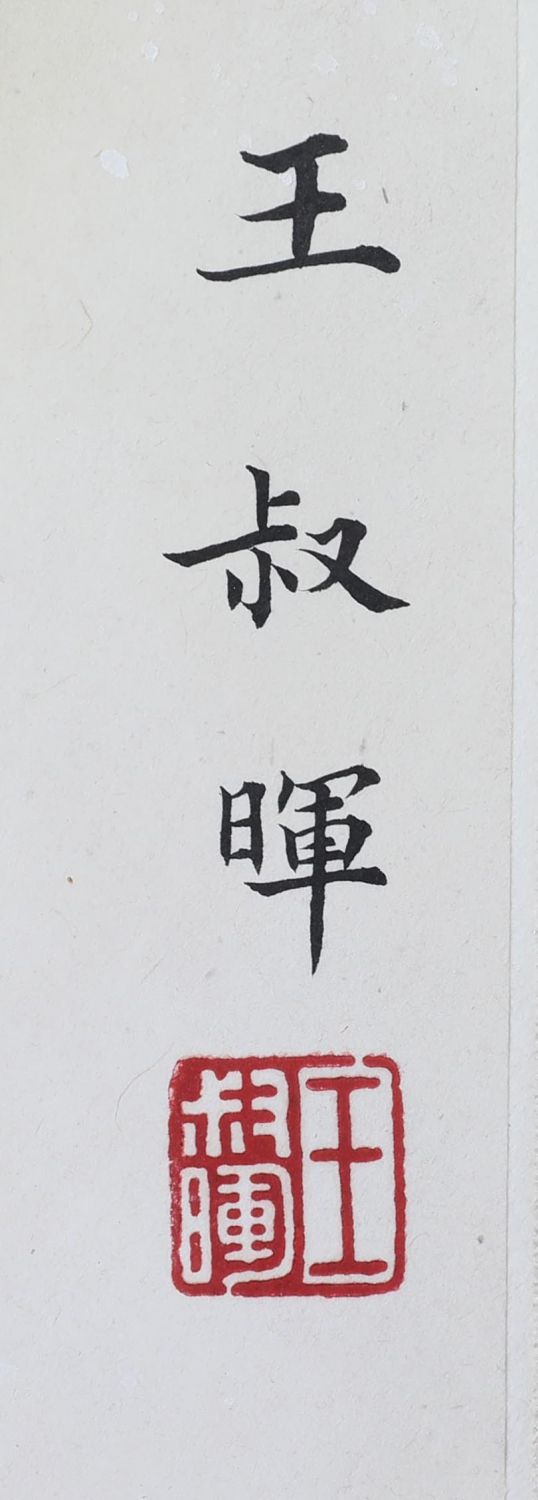 王叔暉
王叔暉